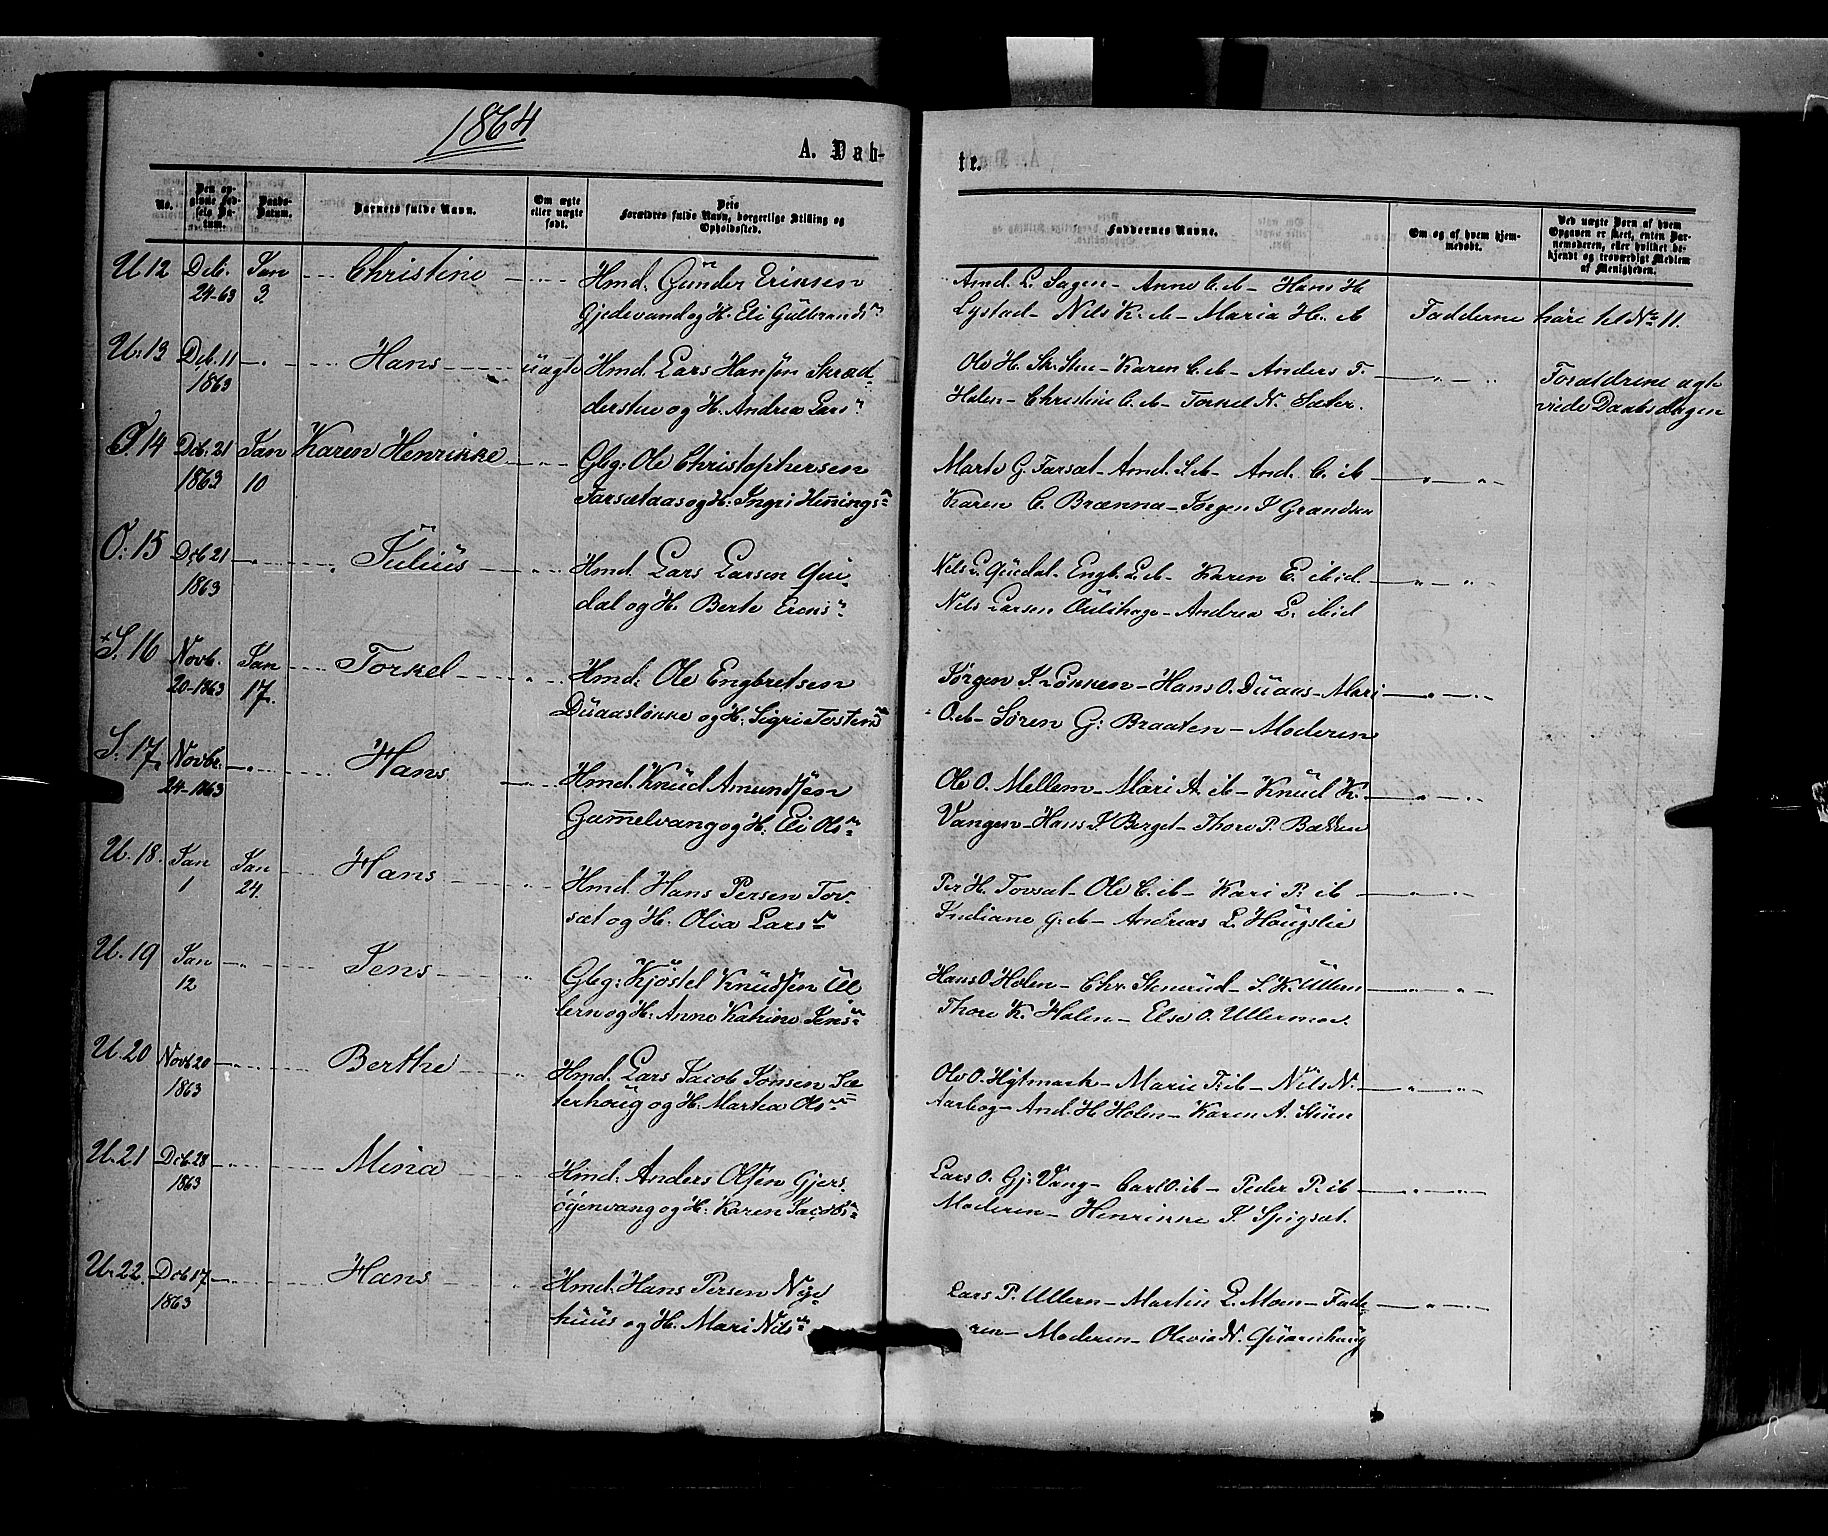 1864
A. Dab-
tr.
No.
Den opgivne Fødsels Datum.
Daabs-Datum.
Barnets fulde Navn.
Om ægte eller uægte født.
Dets Forældres fulde Navn, borgerlige Stilling og Opholdssted.
Faddernes Navne.
Om og af hvem hjemmedøbt.
Ved uægte Børn af hvem Opgaven er skeet, enten Barnemoderen, eller hvilket bekjendt og troværdigt Medlem af Menigheden.
U 12 Deb. 24-63 Jan 3. Christine Hmd. Gunder Eriksen
Gjedevand og H. Eli Gulbrandsn
Amd. L. Sagen - Anne C. ib - Hans H
Lystad - Nils K. ib - Maria H. ib
Fadderne høre til No 11.
U. 13 Dcb. 11 1863 Hans uægte Hmd. Lars Hansen Skræd-
derstue og H. Andrea Larsn
Ole H. Sk. Stue - Karen C. ib - Anders T.
Holen - Christine C. ib - Torkel N. Sæter.
Forældrene ægte
viede Daabsdagen
O. 14 Dcb. 21 1863 Jan 10 Karen Henrikke Gbg: Ole Christophersen
Farsætaas og H. Ingri Hennings
Marte G. Farsæt - Amd. S. ib - And. C. ib
Karen C. Brænna - Jørgen J
O: 15 Dcb 21 1863 Julius Hmd. Lars Larsen Qui-
dal og H. Berte Eriksn
Nils L. Quedal - Engb. L. ib - Karen E. ibid.
Nils Larsen Aulihage - Andrea L. ibid
S. 16 Novb. 20-1863 Jan 17. Torkel Hmd: Ole Engbretsen
Duaasløkke og H. Sigri Tostensn
Jørgen J. Løkken - Hans O. Duaas - Mari
O. ib - Søren G: Braaten - Moderen
S. 17. Novbr. 24-1863 Hans Hmd. Knud Amundsen
Gammelvang og H. Eli Olsn
Ole O. Mellem - Mari A. ib - Knud K.
Vangen - Hans J. Berget - Thore P. Bakken
U. 18. Jan 1 Jan 24. Hans Hmd. Hans Persen Tov-
sæt og H. Olia Larsn
Per H. Tovsæt - Ole C. ib - Kari P. ib
Indiane G. ib - Andreas L. Haugslie
U. 19 Jan 12 Jens Gbg: Kjøstel Knudsen Ul-
lern og H. Anne Katrine Jensn
Hans O. Holen - Chr. Stenrud - S. K. Ullern
Thore K. Holen - Else O. Ullernmoe.
U. 20 Novb 20 1863 Berthe Hmd. Lars Jacob Jonsen Sæ-
terhoug og H. Marthea Olsn
Ole O. Hytmark - Marie T. ib - Nils N.
Aarbog - And. H. Holen - Karen A. Stuen
U. 21 Dcb. 28 1863 Mina Hmd. Anders Olsen Gjers-
øyenvang og H: Karen Jacobsn
Lars O. Gj: Vang - Carl O. ib - Peder P. ib
Moderen - Henrikke J. Spigsæt.
U. 22. Dcb 17 1863 Hans Hmd. Hans Persen Nye-
huus og H. Mari Nilsn
Lars P. Ullern - Martin L. Moen - Fade-
ren - Moderen - Olevia N. Quærnhaug